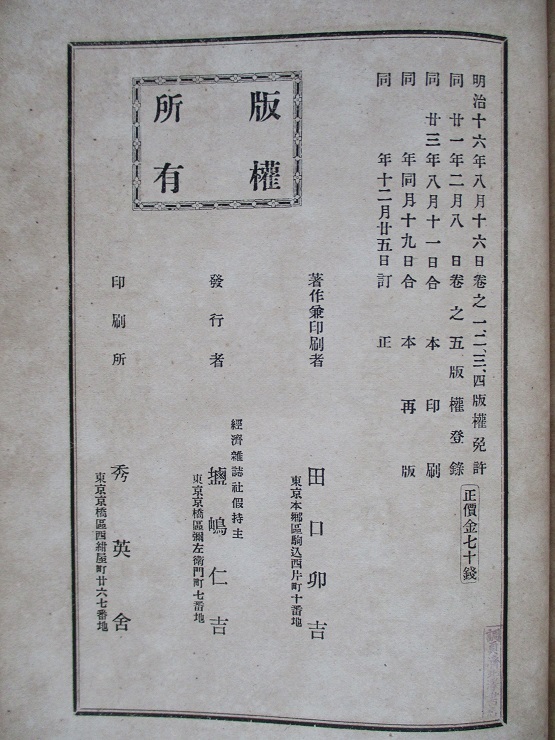 明治十六年八月十六日卷之一、二、三、四版權免許
同廿一年二月八日卷之五版權登錄
同廿三年八月十一日合本印刷
同年同月十九日合本再版
同年十二月廿五日訂正
正價金七十錢
版權
所有
著作兼印刷者
田口卯吉
東京本鄉區駒込西片町十番地
發行者
經濟雜誌社假持主
鹽嶋仁吉
東京京橋區彌左衞門町七番地
印刷所
秀英舍
東京京橋區西紺屋町廿六七番地